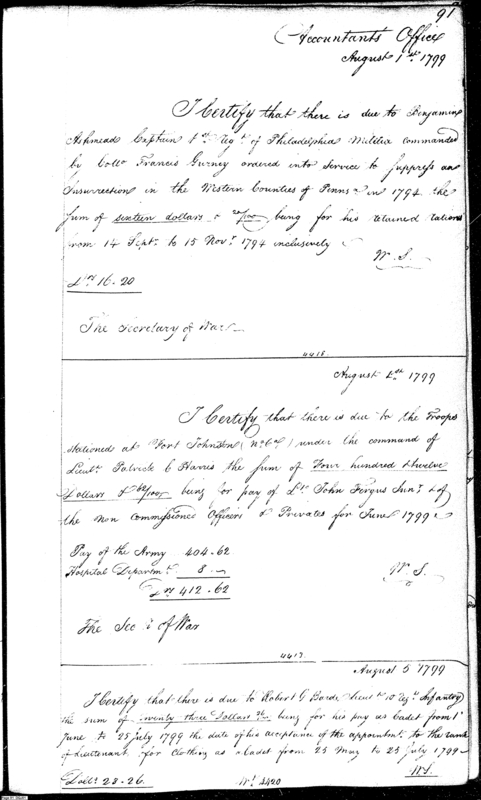 91
Accountants Office
August 1st. 1799
I Certify that there is due to Benjamin
Ashmead Captain 1st. Regt. of Philadelphia Militia commanded
by Collo. Francis Gurney ordered into Service to Suppress an
Insurrection in the Western Counties of Penns.a in 1794 the
Sum of sixteen dollars & 20/100 being for his retained rations
from 14 Septr. to 15 Novr. 1794 inclusively
W. S.
Drs 16.20
The Secretary of War
4418.
August 2nd. 1799
I Certify that there is due to the Troops
stationed at Fort Johnson (No. Ca.) under the command of
Lieutt. Patrick C Harris the Sum of Four hundred & twelve
Dollars & 62/100 being for pay of Lt. John Fergus Junr. & of
the Non Commissioned Officers & Privates for June 1799
Pay of the Army 404.62
Hospital Departmt. 8.
Drs 412.62
W. S.
The Secy. of War
4419.
August 5 1799
I Certify that there is due to Robert G Barde Lieut. Regt. Infantry
the sum of twenty three Dollars 26/100 being for his pay as Cadet from 1st
June to 25 July 1799 the date of his acceptance of the appointmt. to the rank
of Lieutenant for Clothing as a Cadet from 25 May to 25 July 1799
W S.
Dolls. 23.26
No. 4420